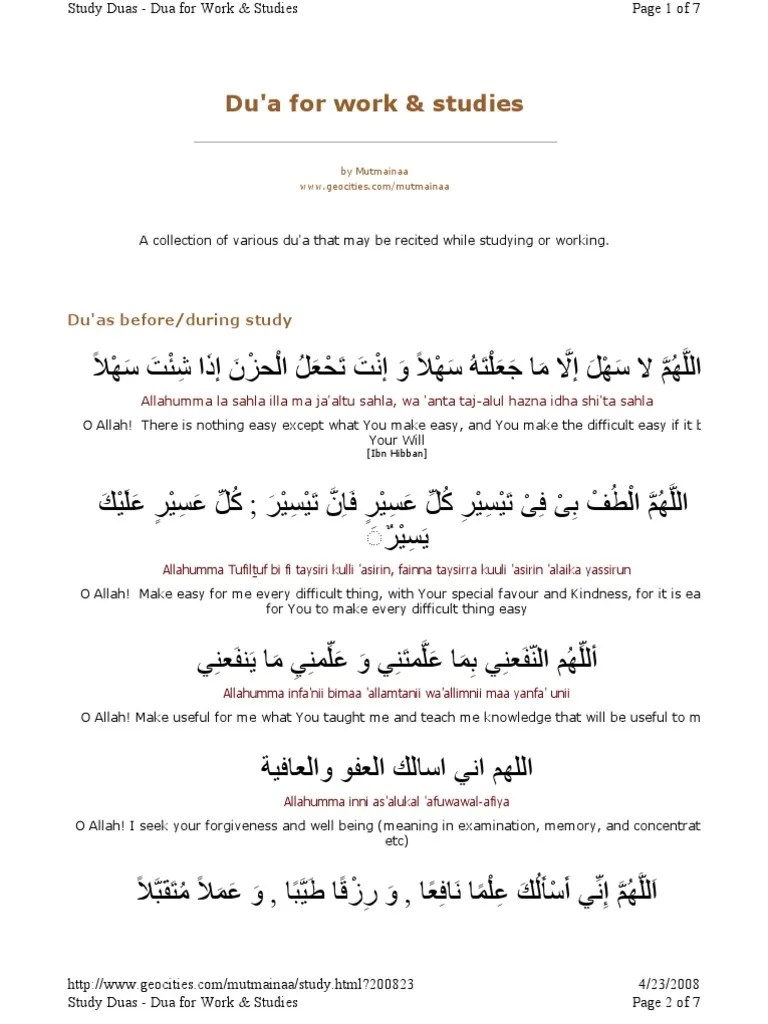 Study Duas - Dua for Work & Studies Page 1 of 7
Du'a for work & studies
by Mutmainaa
www.geocities.com/mutmainaa
A collection of various du'a that may be recited while studying or working.
Du'as before/during study
اللَّهُمَّ لا سَهْلَ إلَّا مَا جَعَلْتَهُ سَهْلاً وَ إنْتَ تَحْعَلُ الْحزْنَ إذَا شِئْتَ سَهْلاً
Allahumma la sahla illa ma ja'altu sahla, wa 'anta taj-alul hazna idha shi'ta sahla
O Allah! There is nothing easy except what You make easy, and You make the difficult easy if it b
Your Will
[Ibn Hibban]
اللَّهُمَّ الْطُفْ بِىْ فِىْ تَيْسِيْرِ كُلِّ عَسِيْرٍ فَاِنَّ تَيْسِيْرَ ; كُلِّ عَسِيْرٍ عَلَيْكَ
يَسِيْرٌ َ
Allahumma Tufilṯuf bi fi taysiri kulli 'asirin, fainna taysirra kuuli 'asirin 'alaika yassirun
O Allah! Make easy for me every difficult thing, with Your special favour and Kindness, for it is ea
for You to make every difficult thing easy
أللّهُم النّفَعنِي بِمَا عَلَّمتَنِي وَ عَلِّمنِي مَا يَنفَعنِي
Allahumma infa'nii bimaa 'allamtanii wa'allimnii maa yanfa' unii
O Allah! Make useful for me what You taught me and teach me knowledge that will be useful to m
اللهم اني اسالك العفو والعافية
Allahumma inni as'alukal 'afuwawal-afiya
O Allah! I seek your forgiveness and well being (meaning in examination, memory, and concentrat
etc)
اَللَّهُمَّ إِنِّي أسْأَلُكَ عِلْمًا نَافِعًا , وَ رِزْقًا طَيِّبًا , وَ عَمَلاً مُتَقَبَّلاً
http://www.geocities.com/mutmainaa/study.html?200823 4/23/2008
Study Duas - Dua for Work & Studies Page 2 of 7